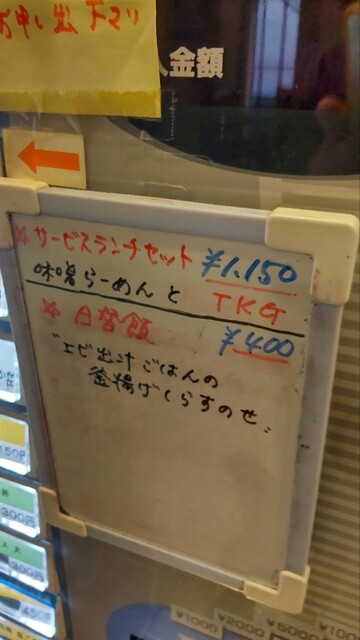 お申し出下さい
金額
※サービスランチセット ¥1,150
味噌らーめんと TKG
※日替飯 ¥400
"エビ出汁ごはんの
釜揚げしらすのせ〟
300円
450円
¥1000 ¥2000 ¥5000